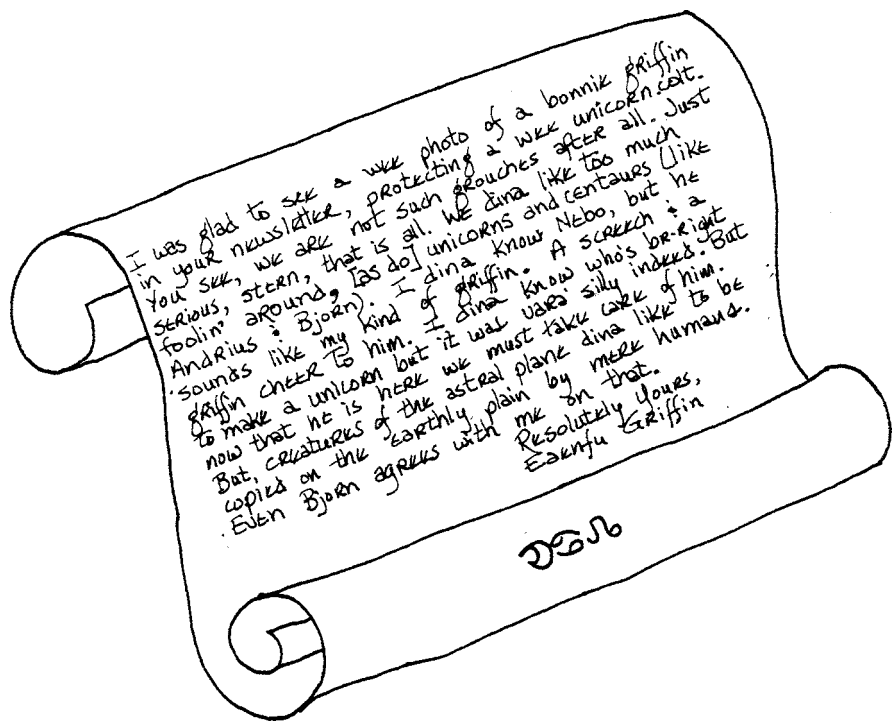 I was glad to see a wee photo of a bonnie griffin
in your newsletter, protecting a wee unicorn colt.
You see, we are not such grouches after all. Just
serious, stern, that is all. We dina like too much
foolin' around, [as do] unicorns and centaurs (like
Andrius & Bjorn). I dina know Nebo, but he
sounds like my kind of griffin. A screech & a
griffin cheer to him. I dina know who's be-right
to make a unicorn but it was vara silly indeed. But
now that he is here we must take care of him.
But, creatures of the astral plane dina like to be
copied on the earthly plain by mere humans.
Even Bjorn agrees with me on that.
Resolutely yours,
Eaenfu Griffin